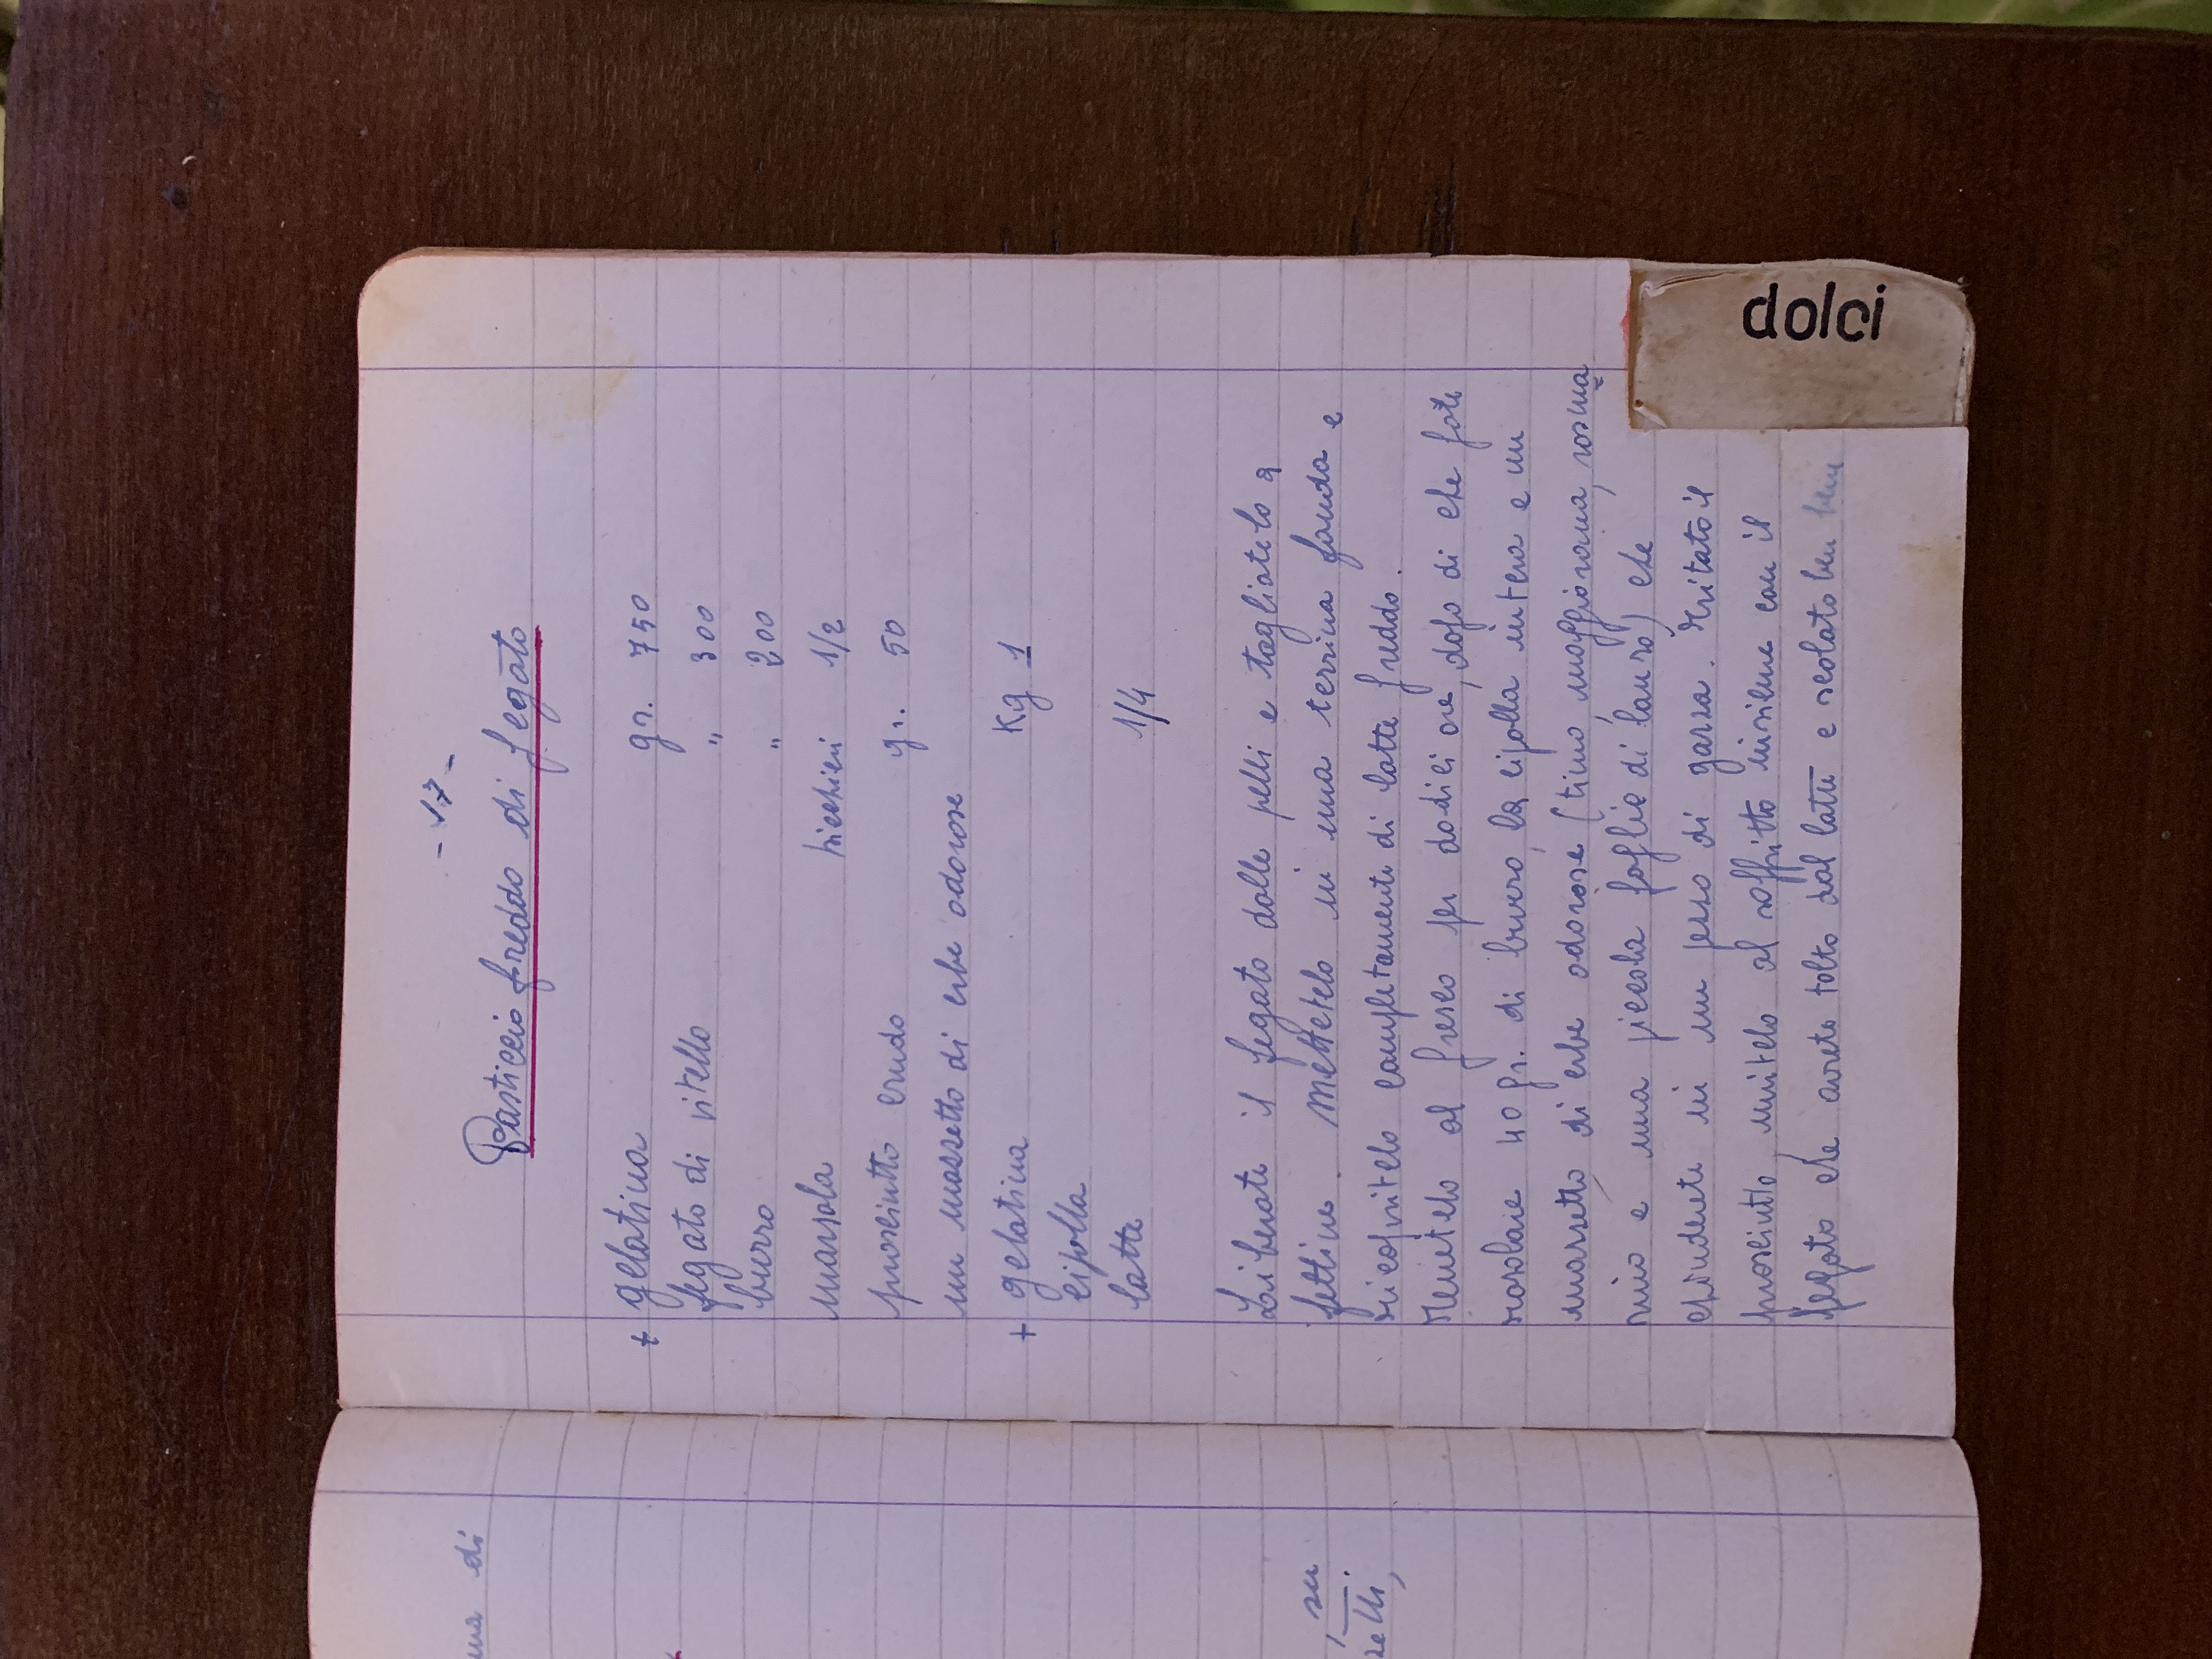 ma di
, su
zetti,
- 17 -
Pasticcio freddo di fegato
+ gelatina gr. 750
fegato di vitello " 300
burro " 200
marsala bicchieri 1/2
prosciutto crudo gr. 50
un mazzetto di erbe odorose
+ gelatina Kg 1
cipolla
latte 1/4
Liberate il fegato dalle pelli e tagliatelo a
fettine. Mettetelo in una terrina fonda e
ricopritelo completamente di latte freddo.
Tenetelo al fresco per dodici ore, dopo di che fate
rosolare 40 gr. di burro, la cipolla intera e un
mazzetto di erbe odorose (timo, maggiorana, rosma
rino e una piccola foglia di lauro) che
chiuderete in un pezzo di garza. Tritato il
prosciutto, unitelo al soffritto insieme con il
fegato che avrete tolto dal latte e scolato ben bene
dolci